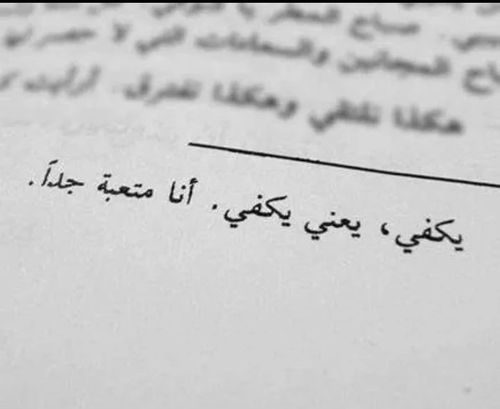 صباح
اح المجانين والسعادات التي لا حصر لها
هكذا نلتقي وهكذا نفترق. أرأيت
يكفي، يعني يكفي. أنا متعبة جداً.